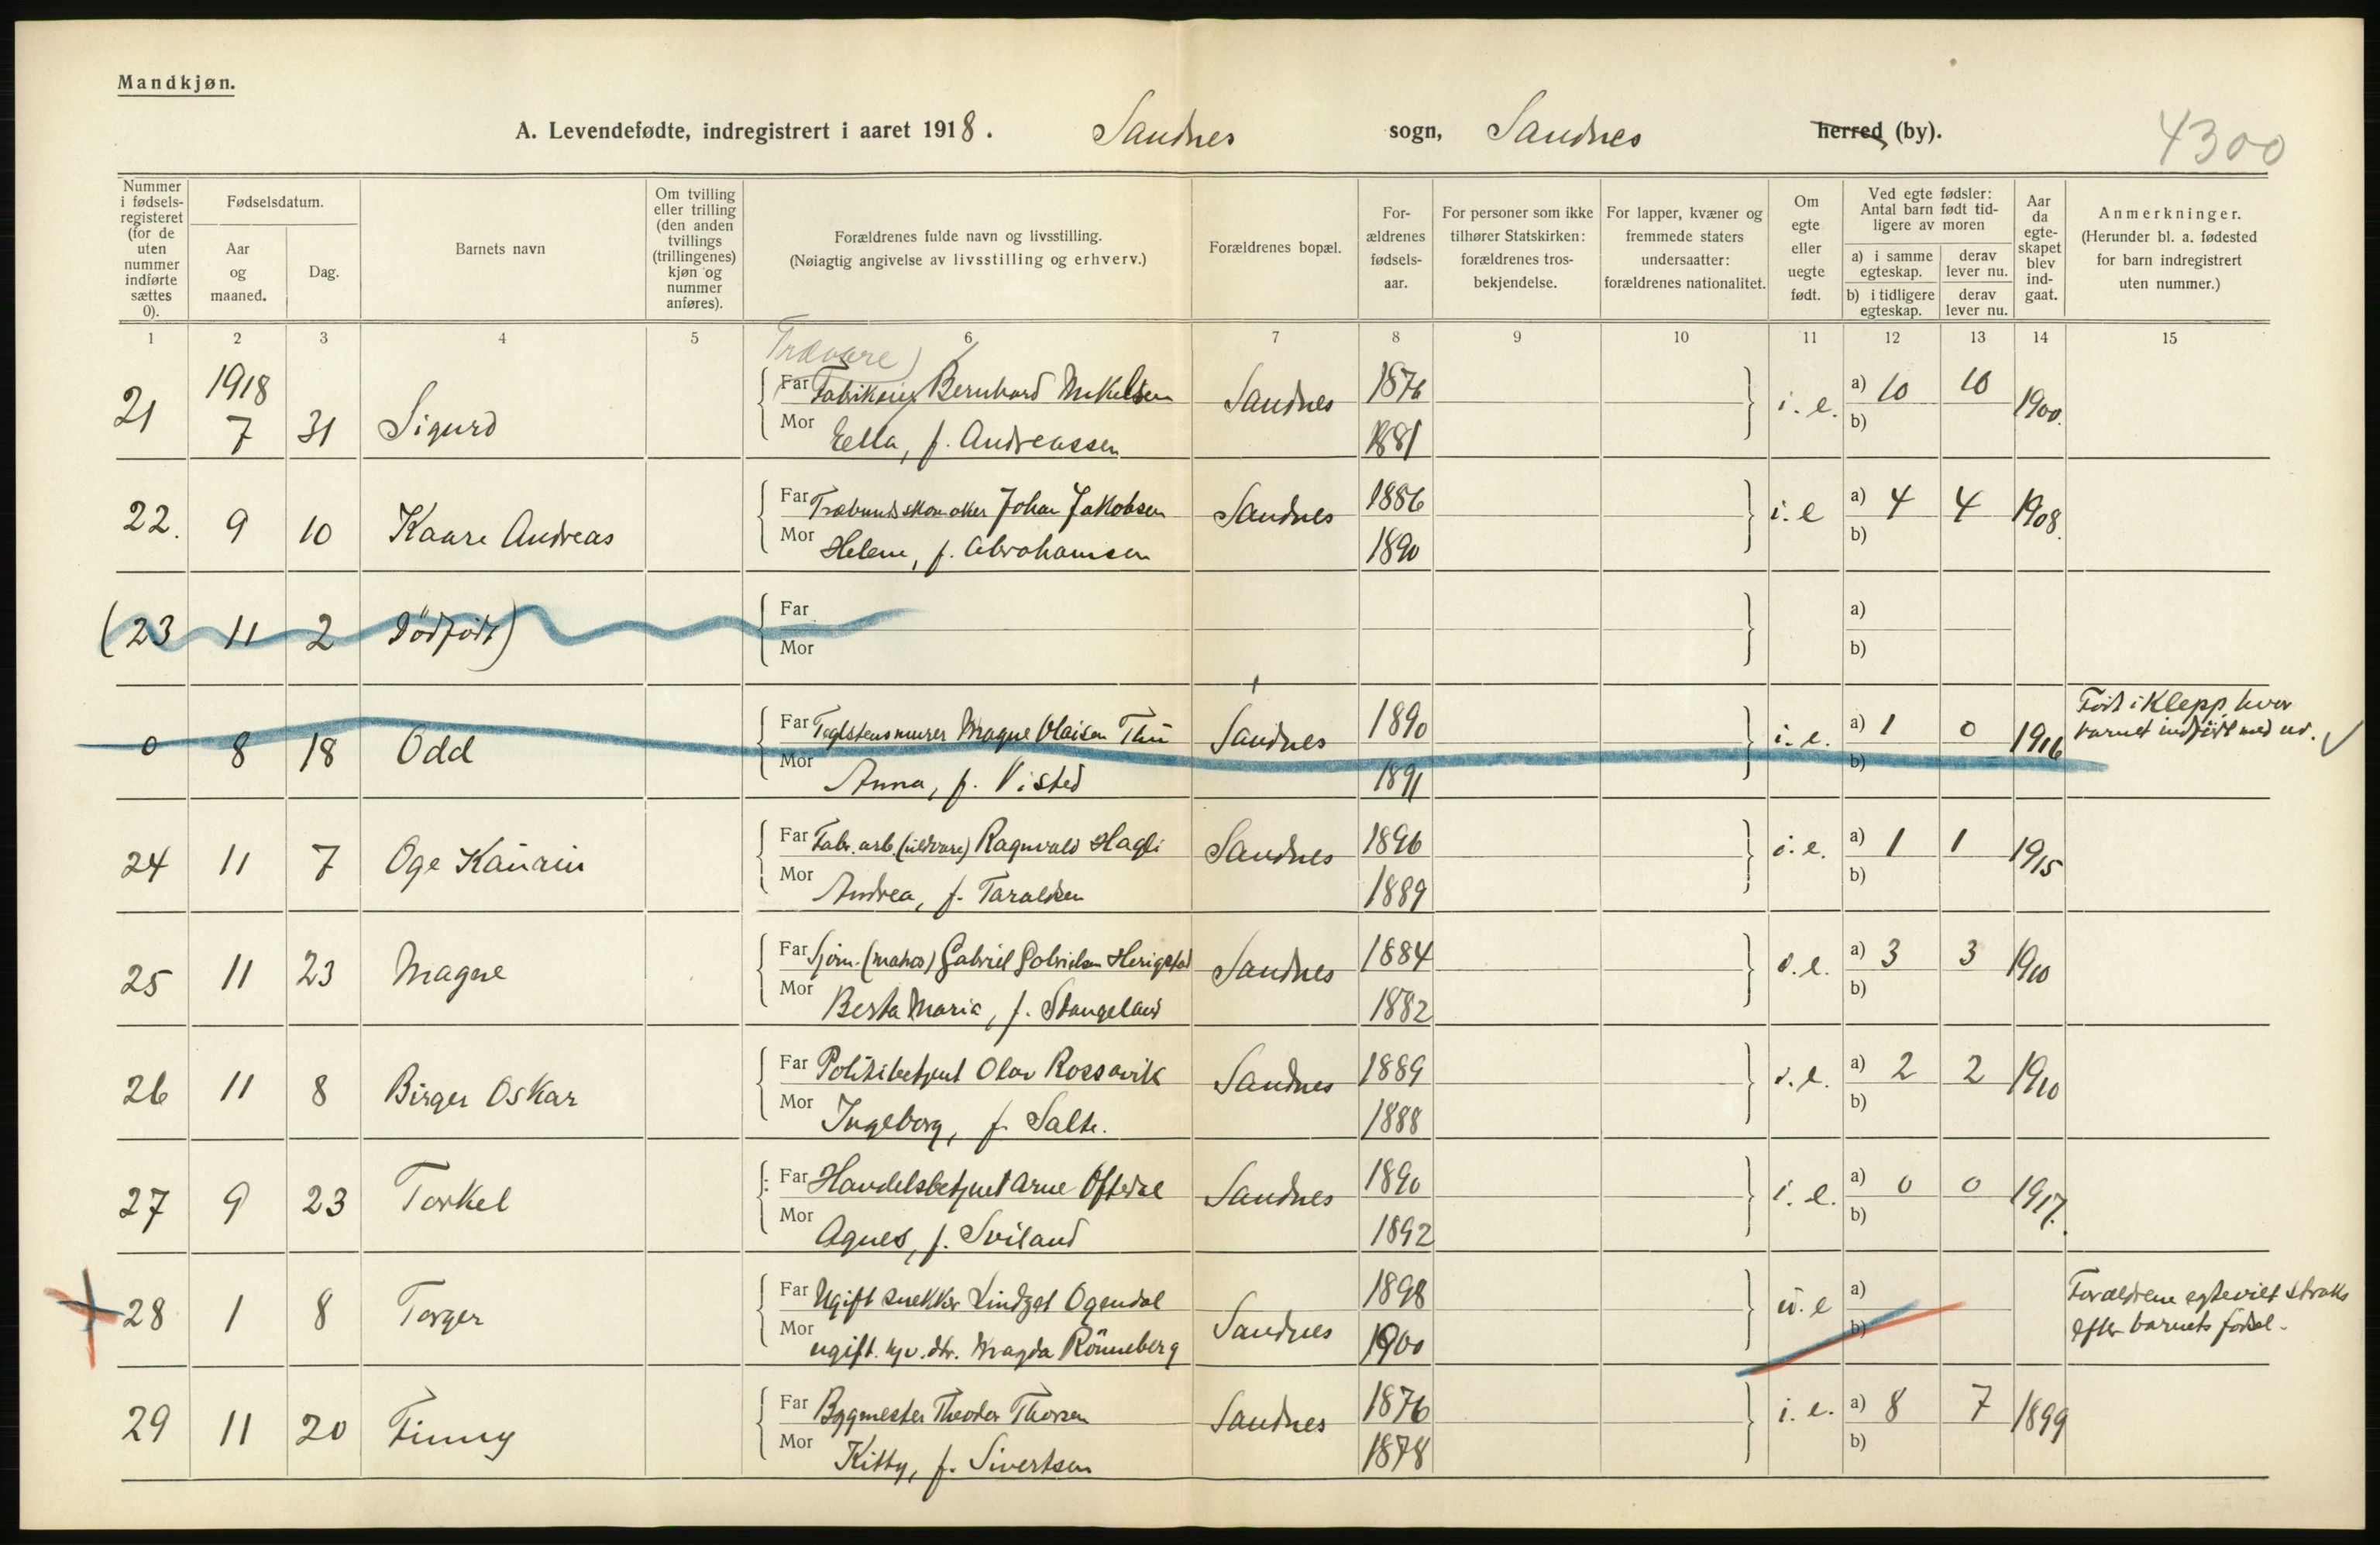 Mandkjøn.
A. Levendefødte, indregistrert i aaret 1918. Sandnes sogn, Sandnes herred (by).
4300
Nummer i fødsels-registeret (for de uten nummer indførte sættes 0).
Fødselsdatum.
Aar og maaned.
Dag.
Barnets navn
Om tvilling eller trilling (den anden tvillings (trillingenes) kjøn og nummer anføres).
Forældrenes fulde navn og livsstilling.
(Nøiagtig angivelse av livsstilling og erhverv.)
Forældrenes bopæl.
For-ældrenes fødsels-aar.
For personer som ikke tilhører Statskirken: forældrenes tros-bekjendelse.
For lapper, kvæner og fremmede staters undersaatter: forældrenes nationalitet.
Om egte eller uegte født.
Ved egte fødsler: Antal barn født tid-ligere av moren
a) i samme egteskap.
derav lever nu.
b) i tidligere egteskap.
derav lever nu.
Aar da egte-skapet blev ind-gaat.
Anmerkninger.
(Herunder bl. a. fødested for barn indregistrert uten nummer.)
1 2 3 4 5 6 7 8 9 10 11 12 13 14 15
Trævare)
1918
21 7 31 Sigurd Far Fabrikeier Bernhard Mikelsen Sandnes 1876 i. e. a) 10 10 1900.
Mor Ella, f. Andreassen 1881 b)
22. 9 10 Kaare Andreas Far Træbundskomaker Johan Jakobsen Sandnes 1886 i. e a) 4 4 1908.
Mor Helene, f. Abrahamsen 1890 b)
(23 11 2 Dödfödt) Far a)
Mor b)
0 8 18 Odd Far Teglstensmurer Magne Olaisen Thu Sandnes 1890 i. e. a) 1 0 1916 Föd i Klepp, hvor
barnet indfört med nr.
Mor Anna, f. Visted 1891 b)
24 11 7 Far Fabr. arb. (uldvare) Ragnvald Hagli Sandnes 1896 i. e. a) 1 1 1915
Mor Andrea, f. Taraldsen 1889 b)
25 11 23 Magne Far Sjöm. (matros) Gabriel Gabrielsen Herigstad Sandnes 1884 i. e. a) 3 3 1910
Mor Berta Maria, f. Stangeland 1882 b)
26 11 8 Birger Oskar Far Politibetjent Olav Rossavik Sandnes 1889 i. e. a) 2 2 1910
Mor Ingeborg, f. Salte. 1888 b)
27 9 23 Torkel Far Handelsbetjent Arne Oftedal Sandnes 1890 i. e. a) 0 0 1917.
Mor Agnes, f. Sviland 1892 b)
28 1 8 Torger Far Ugift snekker Ogendal Sandnes 1898 u. e a) Forældrene egteviet straks
efter barnets födsel.
Mor ugift. Magda Rönneberg 1900 b)
29 11 20 Finny Far Bygmester Theodor Thorsen Sandnes 1876 i. e. a) 8 7 1899
Mor Kitty, f. Sivertsen 1878 b)